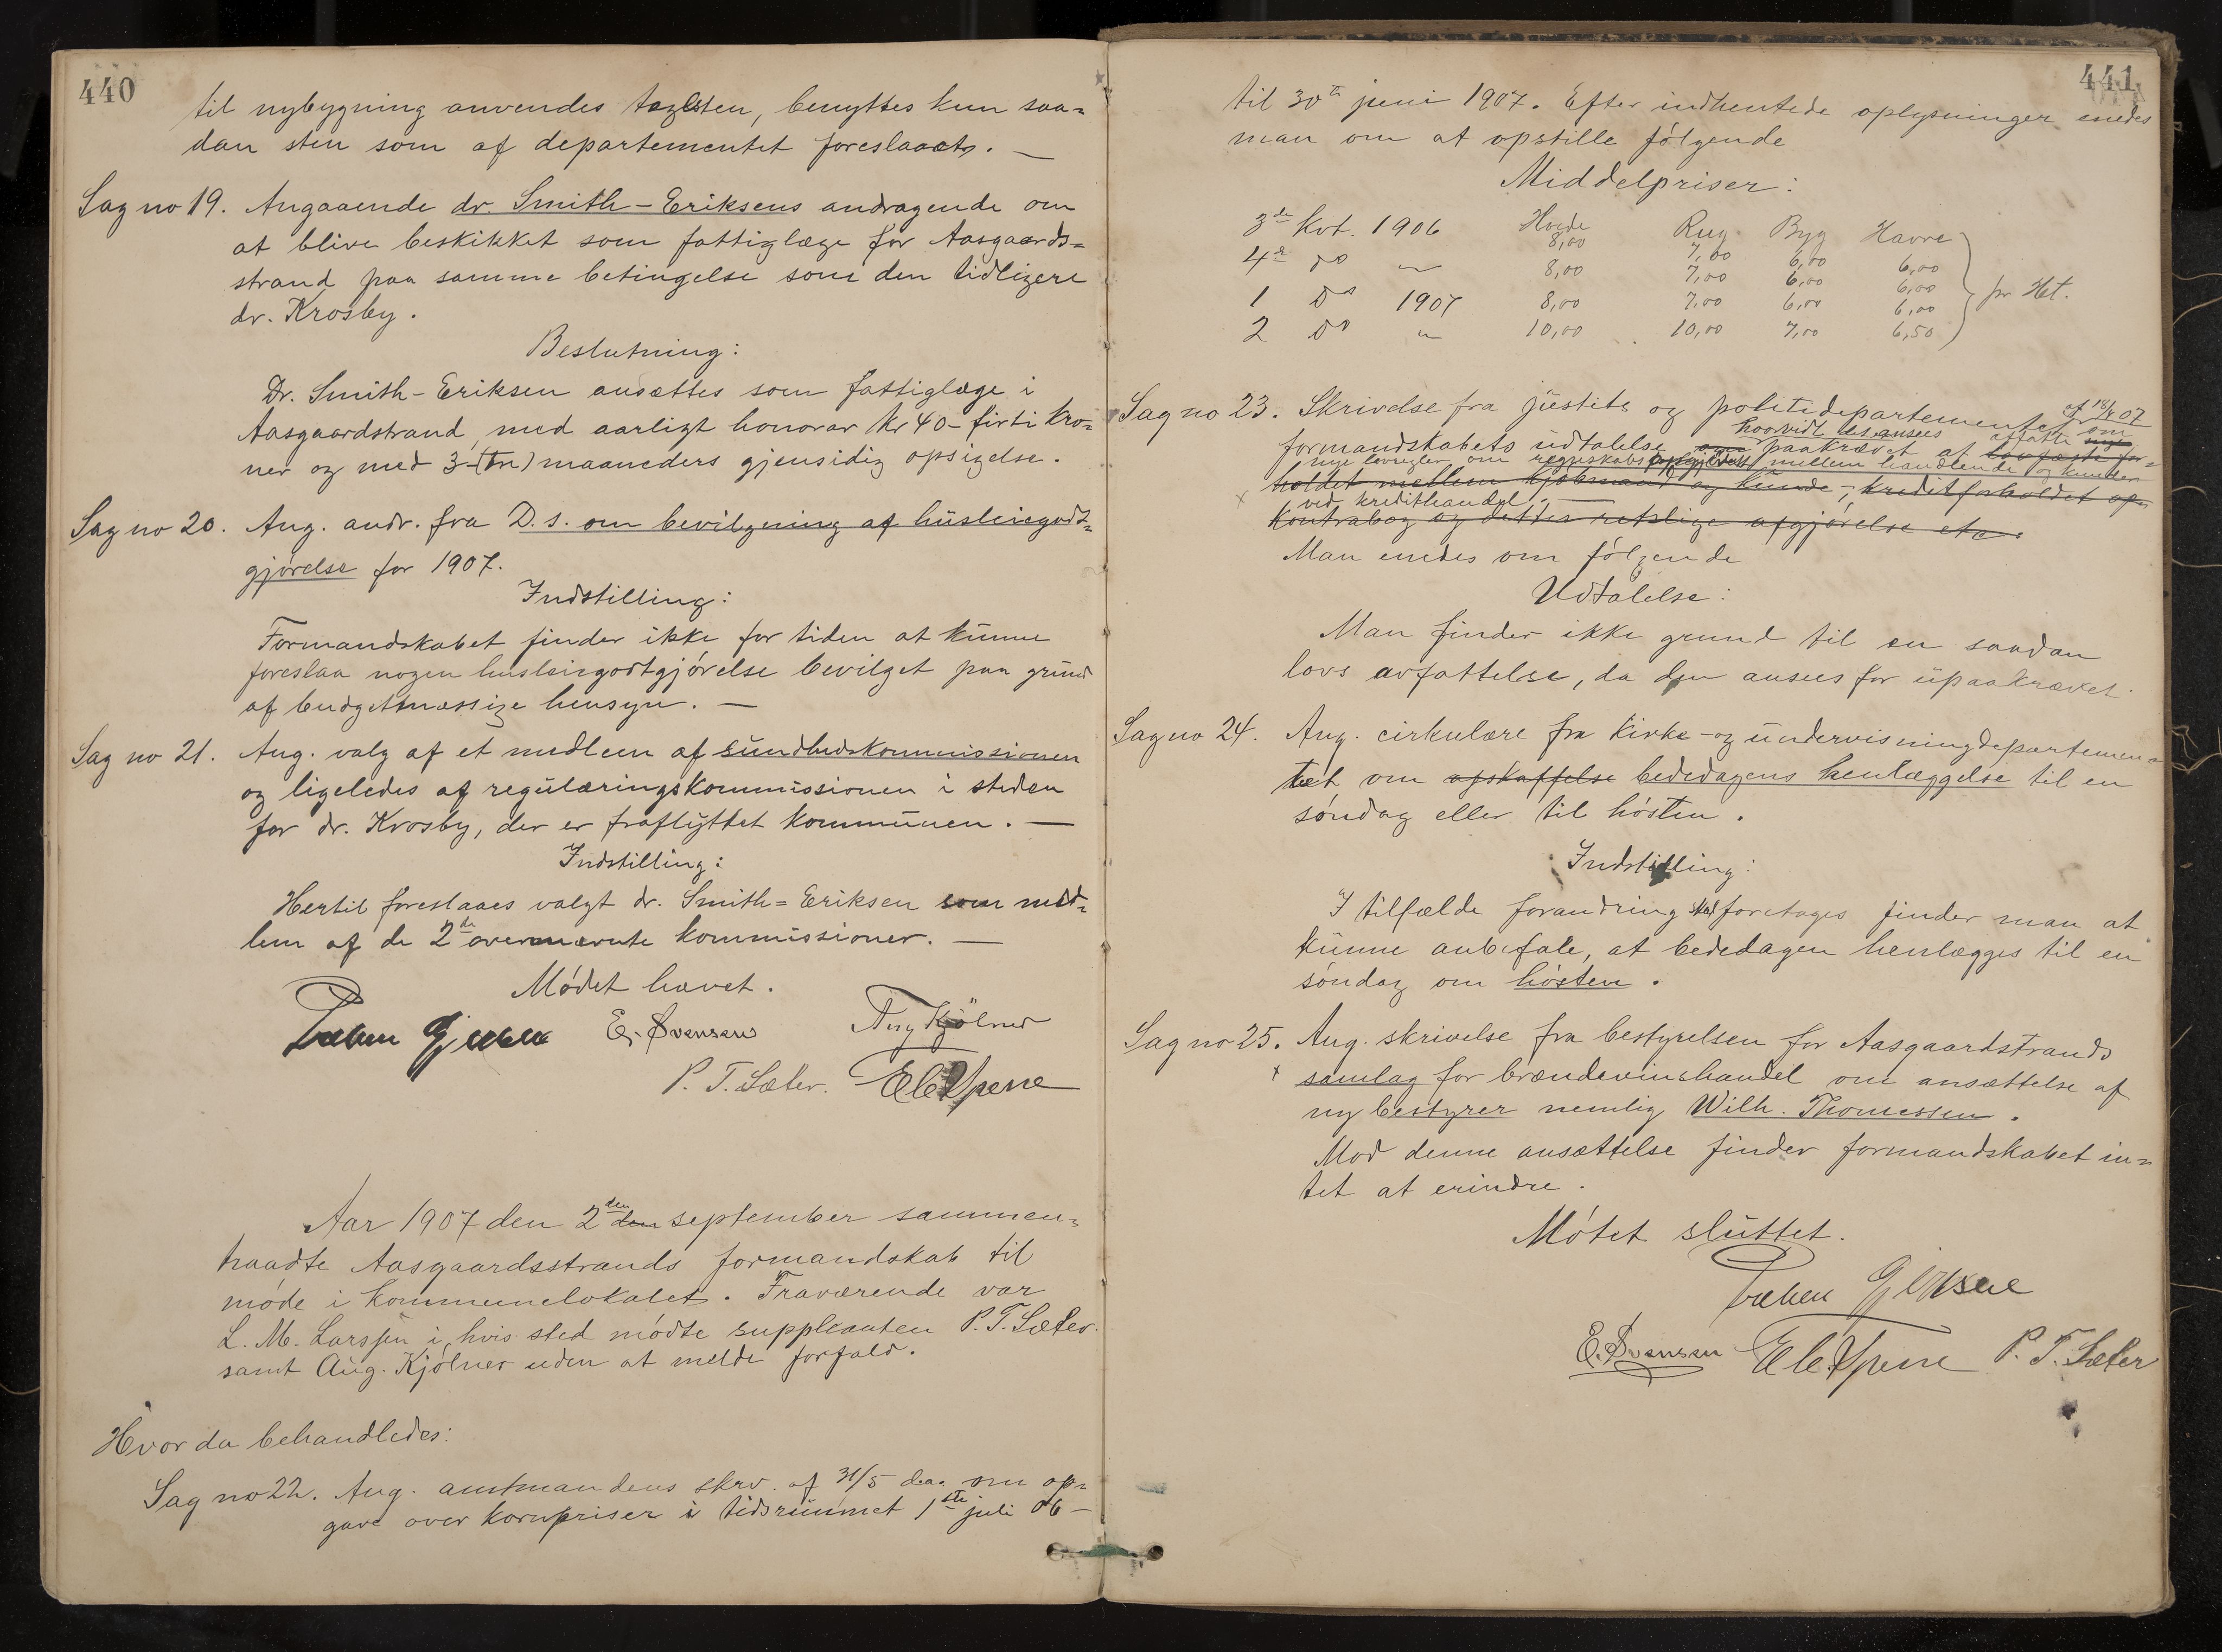 440
til nybygning anvendes taglsten, benyttes kun saa=
dan sten som af departementet foreslaaets. —
Sag no 19. Angaaende dr. Smith-Eriksens andragende om
at blive beskikket som fattiglæge for Aasgaards=
strand paa samme betingelse som den tidligere
dr. Krosby.
Beslutning:
Dr. Smith-Eriksen ansættes som fattiglæge i
Aasgaardstrand, med aarligt honorar kr 40 - firti kro=
ner og med 3-(tre) maaneders gjensidig opsigelse.
Sag no 20. Ang. andr. fra D. S. om bevilgning af husleiegodt=
gjørelse for 1907.
Indstilling:
Formandskabet finder ikke for tiden at kunne
foreslaa nogen husleiegodtgjørelse bevilget paa grund
af budgetmæssige hensyn. —
Sag no 21. Ang. valg af et medlem af sundhedskommissionen
og ligeledes af reguleringskommissionen i steden
for dr. Krosby, der er fraflyttet kommunen. —
Indstilling:
Hertil foreslaaes valgt dr. Smith=Eriksen som med=
lem af de 2de overnævnte kommissioner. —
Mødet hævet.
E. Svensen Aug Kjölner
P. T. Sæter.
Aar 1907 den 2den den september sammen=
traadte Aasgaardsstrands formandskab til
møde i kommunelokalet. Fraværende var
L. M. Larssen i hvis sted mødte suppleanten P. T. Sæter.
samt Aug. Kjølner uden at melde forfald.
Hvor da behandledes:
Sag no 22. Ang. amtmandens skrv. af 31/5 d.a. om op=
gave over kornpriser i tidsrummet 1ste juli 06 —
441
til 30te juni 1907. Efter indhentede oplysninger enedes
man om at opstille følgende
Middelpriser:
3de kvt. 1906 Hvede 8,00 Rug 7,00 Byg 6,00 Havre 6,00
4de do " 8,00 7,00 6,00 6,00
1 do 1907 8,00 7,00 6,00 6,00 pr Hct.
2 do " 10,00 10,00 7,00 6,50
Sag no 23. Skrivelse fra justits og politidepartementet af 18/7 07 om
formandskabets udtalelse om hvorvidt det ansees paakrævet at affatte lovfæste nye for=
nye lovregler om regnskabsopgjøret mellem handlende og kunder
holdet mellem kjøbmand og kunde -, kreditforholdet op=
ved kredithandel. —
kontrabog og dettes retslige afgjørelse etc.
Man enedes om følgende
Udtalelse:
Man finder ikke grund til en saadan
lovs avfattelse, da den ansees for upaakrævet.
Sag no 24. Ang. cirkulære fra kirke- og undervisningdepartemen=
tet om opskaffelse bededagens henlæggelse til en
søndag eller til høsten.
Indstilling:
I tilfælde forandring skal foretages finder man at
kunne anbefale, at bededagen henlægges til en
søndag om høsten.
Sag no 25. Ang. skrivelse fra bestyrelsen for Aasgaardstrands
samlag for brændevinshandel om ansættelse af
ny bestyrer nemlig Wilh. Thomessen.
Mod denne ansættelse finder formandskabet in=
tet at erindre.
Møtet sluttet.
E. Svensen P. T. Sæter